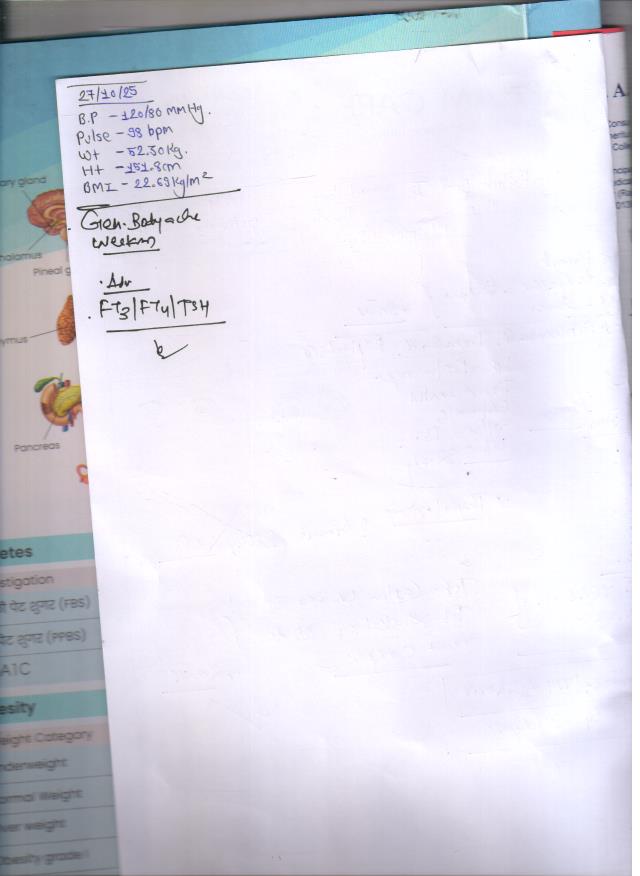 27/10/25
B.P - 120/80 mmHg.
Pulse - 98 bpm
Wt - 52.30 kg.
Ht - 151.8cm
BMI - 22.69 kg/m²
Gen. Body ache
Weakness
Adv
FT3/FT4/TSH
A
ary gland
halamus
Pineal g
ymus
Pancreas
etes
stigation
ी पेट शुगर (FBS)
पेट शुगर (PPBS)
A1C
esity
eight Category
nderweight
ormal Weight
ver weight
Obesity grade I